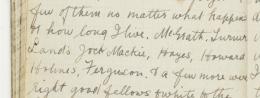 few of them no matter what happens
or how long I live. McGrath, Turner
Lands, Jock Mackie, Hayes, Howard
Holmes, Ferguson, & a few more were
right good fellows & white to the